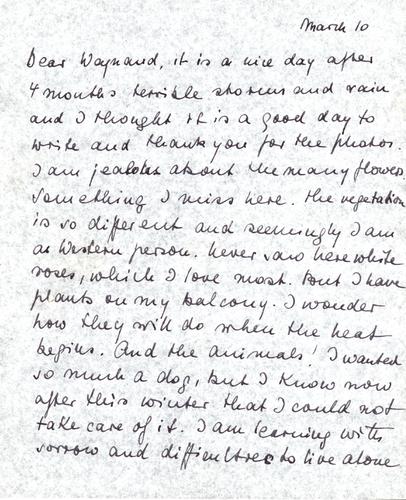 March 10
Dear Waynand, it is a nice day after
4 months terrible storms and rain
and I thought it is a good day to
write and thank you for the photos.
I am jealous about the many flowers,
something I miss here. The vegetation
is so different and seemingly I am
a Western person. Never saw here white
roses, which I love most. But I have
plants on my balcony. I wonder
how they will do when the heat
begins. And the animals! I wanted
so much a dog, but I know now
after this winter that I could not
take care of it. I am learning with
sorrow and difficulties to live alone